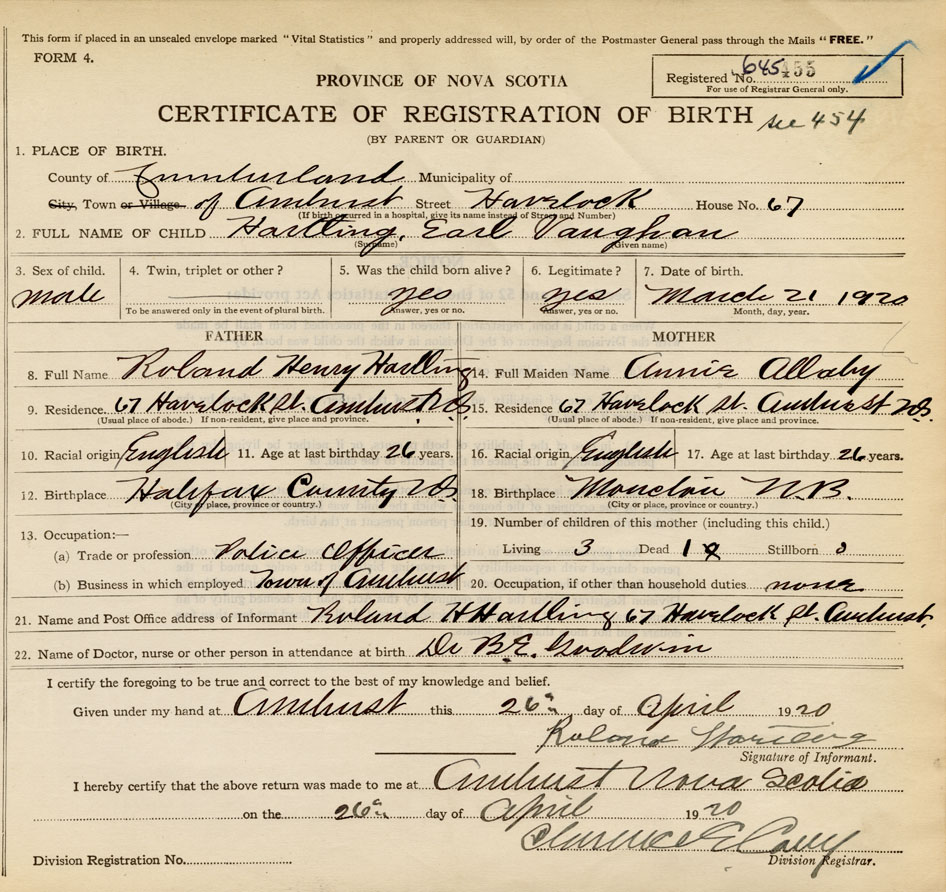 This form if placed in an unsealed envelope marked "Vital Statistics" and properly addressed will, by order of the Postmaster General pass through the Mails "FREE."
FORM 4.
Registered No. 645455
For use of Registrar General only.
PROVINCE OF NOVA SCOTIA
CERTIFICATE OF REGISTRATION OF BIRTH see 454
(BY PARENT OR GUARDIAN)
1. PLACE OF BIRTH.
County of Cumberland Municipality of
City, Town or Village of Amherst Street Havelock House No. 67
(If birth occurred in a hospital, give its name instead of Street and Number)
2. FULL NAME OF CHILD Hartling, Earl Vaughan
(Surname) (Given name)
3. Sex of child. 4. Twin, triplet or other? 5. Was the child born alive? 6. Legitimate? 7. Date of birth.
male yes yes March 21 1920
To be answered only in the event of plural birth. Answer, yes or no. Answer, yes or no. Month, day, year.
FATHER MOTHER
8. Full Name Roland Henry Hartling 14. Full Maiden Name Annie Allaby
9. Residence. 67 Havelock St. Amherst N.S. 15. Residence 67 Havelock St. Amherst N.S.
(Usual place of abode.) If non-resident, give place and province. (Usual place of abode.) If non-resident, give place and province.
10. Racial origin English 11. Age at last birthday 26 years. 16. Racial origin English 17. Age at last birthday 26 years.
12. Birthplace Halifax County N.S. 18. Birthplace Moncton N.B.
(City or place, province or country.) (City or place, province or country.)
19. Number of children of this mother (including this child.)
13. Occupation:—
(a) Trade or profession Police Officer Living 3 Dead 1 Stillborn 0
(b) Business in which employed Town of Amherst 20. Occupation, if other than household duties none
21. Name and Post Office address of Informant Roland H Hartling 67 Havelock St. Amherst.
22. Name of Doctor, nurse or other person in attendance at birth Dr B.E. Goodwin
I certify the foregoing to be true and correct to the best of my knowledge and belief.
Given under my hand at Amherst this 26th day of April 1920
Roland Hartling
Signature of Informant.
I hereby certify that the above return was made to me at Amherst Nova Scotia
on the 26th day of April 1920
Clarence E
Division Registration No. Division Registrar.